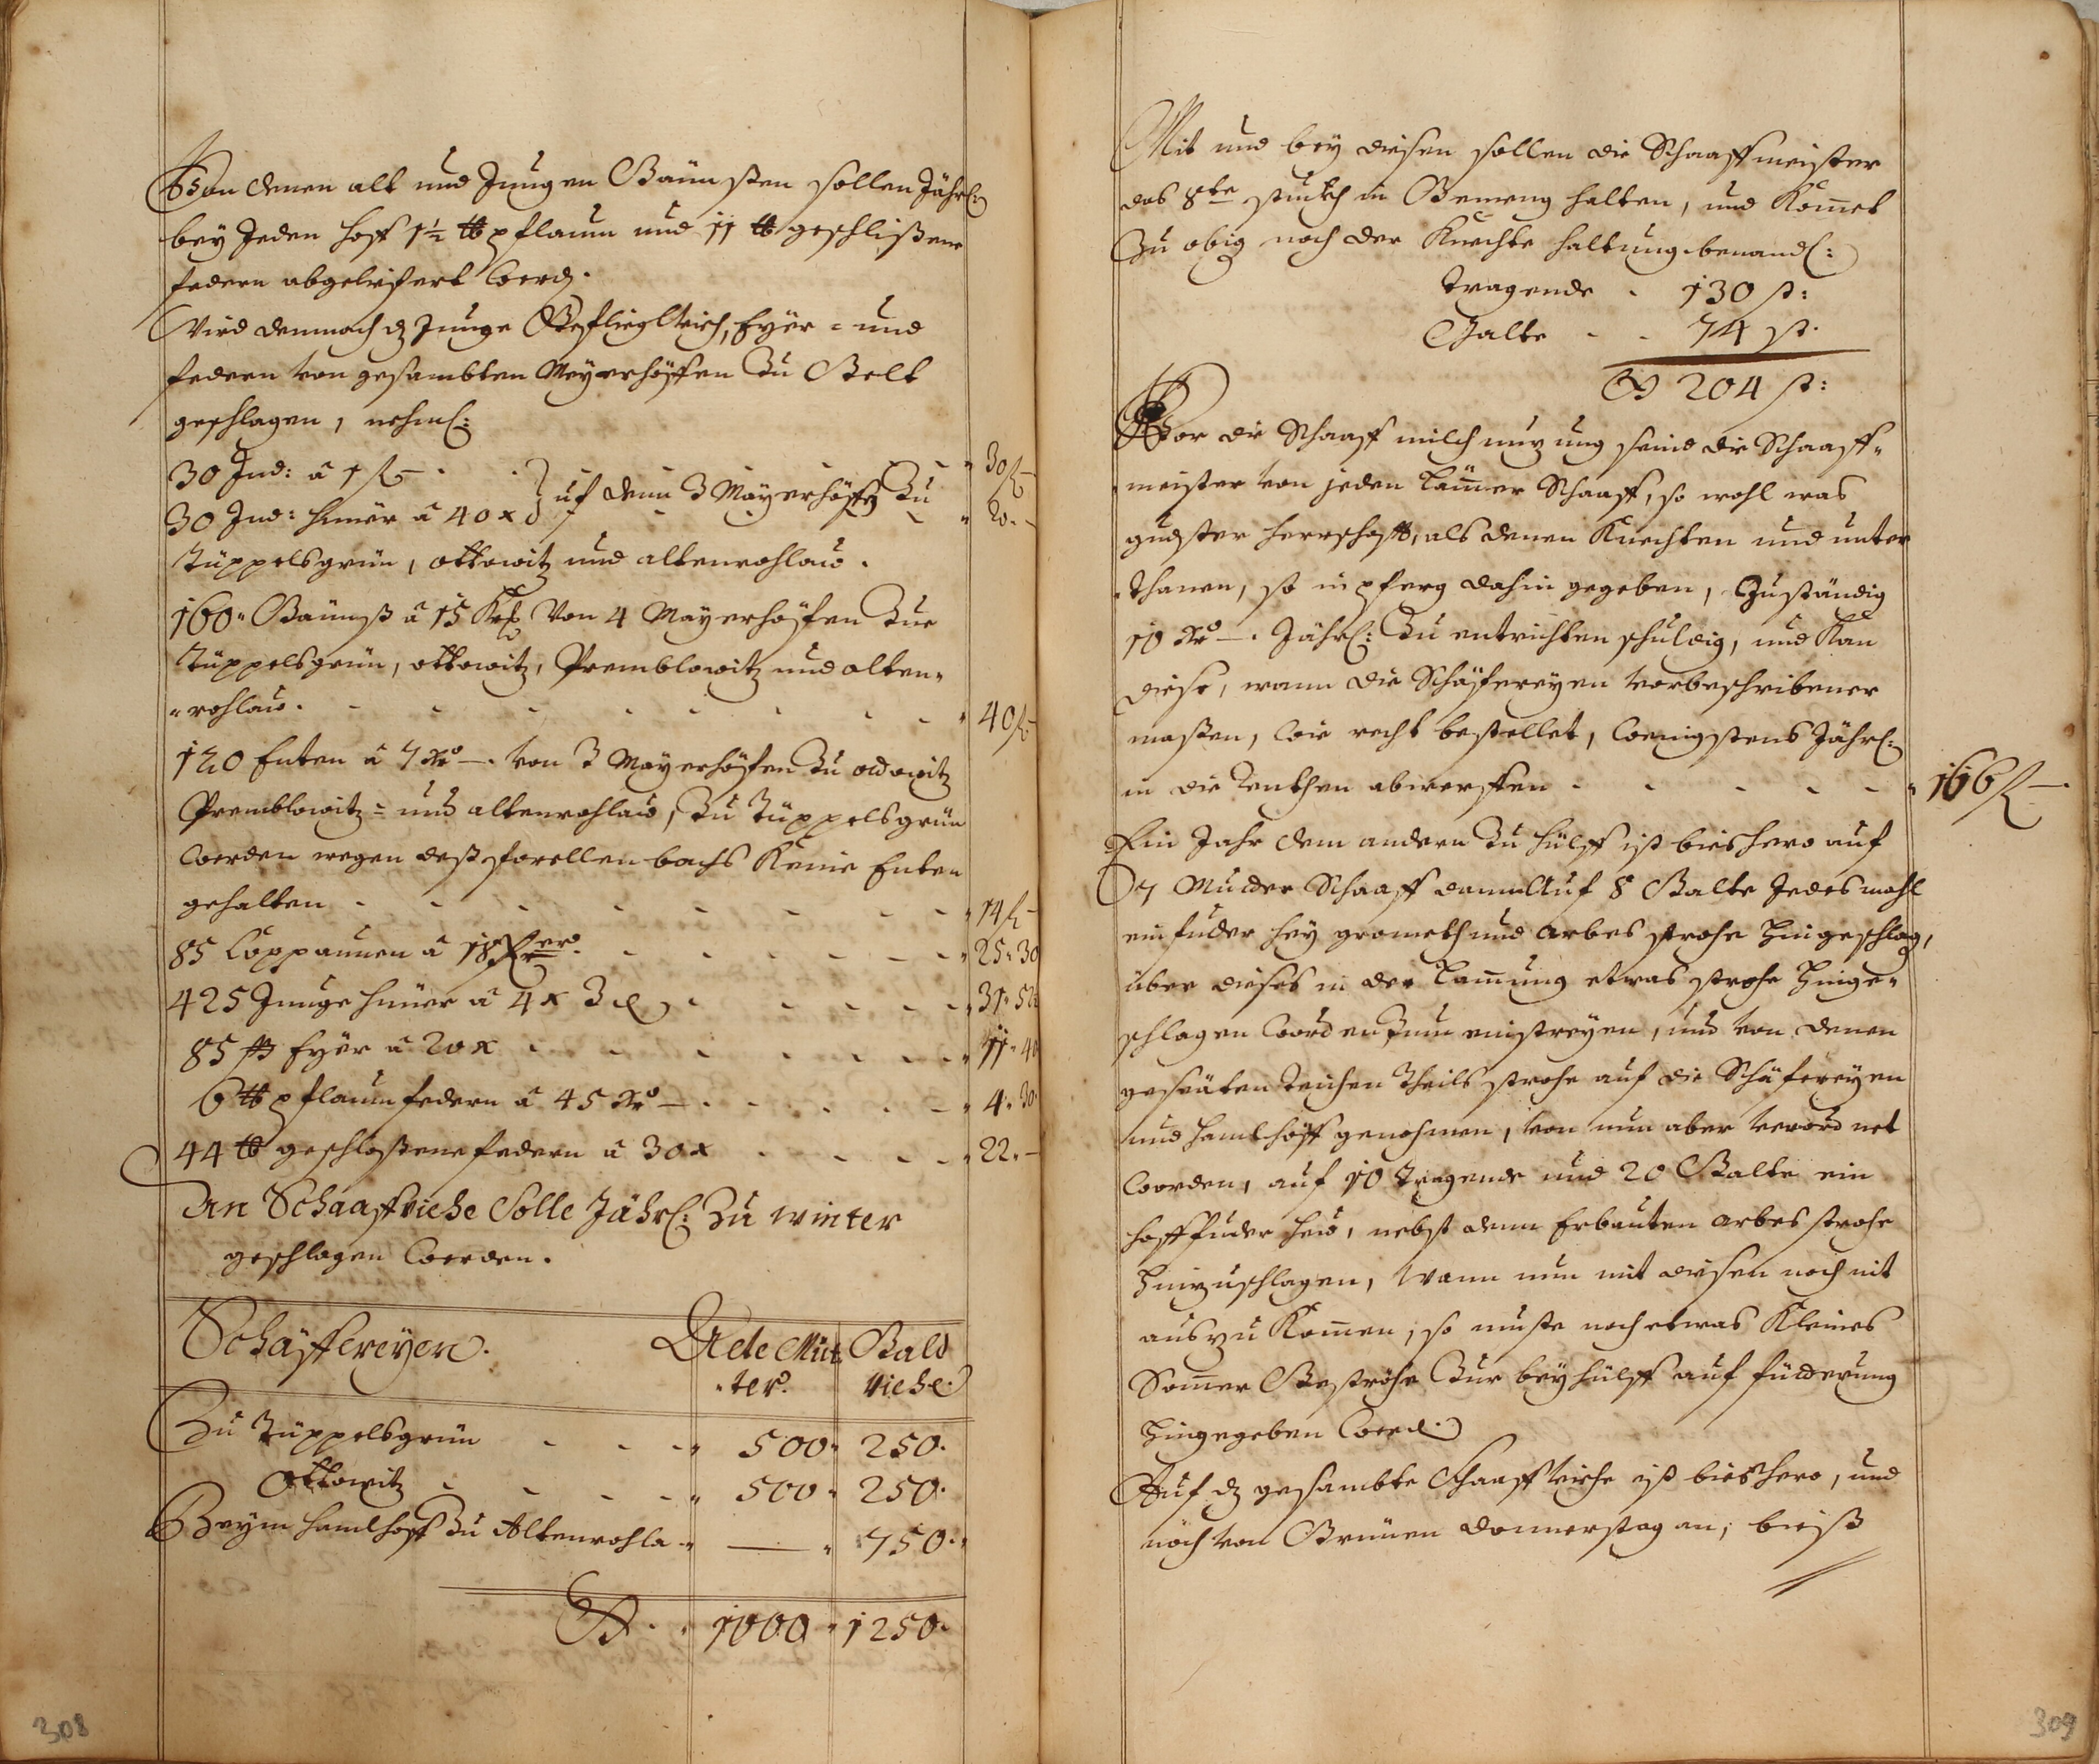 Von denen alt und Jungen Gännsten sollen Jährl:
bey Jeden hoff 1½ ℔ pflaum und 11 ℔ geschlißene
federn abgeliefert werd.
Wird demnach dz Junge Gefliglvieh, Eyer = und
federn von gesambten Meyerhöffen Zu Gelt
geschlagen, nehml:
30 Ind: â 1 fl – . . " 30 fl –
30 Ind: hiner â 40 x } uf denen 3 Mayerhöffen Zu " 20. –
Tüppelsgrün, ottowitz und altenrohlau.
160 " Gännß â 15 Von 4 Mayerhöfen Zue
Tüppelsgrün, ottowitz, Premblowitz und alten "
" rohlau . - - - - - - - " 40 fl –
120 Enten â 7 xr – . von 3 Mayerhöfen Zu odowitz
Premblowitz = und altenrohlau, Zu Tüppelsgrün
werden wegen deß forellen bachs Keine Enten
gehalten - - - - - - - " 14 fl –
85 Coppaunen â 18 xer . - - - - - " 25 " 30
425 Junge hiner â 4 x 3 . - - - - " 31 " 52
85 ß Eyer â 20 x - - - - - - " 11 " 40
6 ℔ pflaumfedern â 45 xr – . - - - - " 4 " 30
44 ℔ geschloßene federn â 30 x - - - - " 22. –
An Schaaffviehe Solle Jährl: Zu winter
geschlagen werden.
Schäffereyen. Alte Müt Galt
" ter. viehe
Zu Tüppelsgrün - - - " 500 " 250.
Ottowitz - - - - " 500 " 250.
Beym hamlhoff Zu Altenrohla " — " 750. "
S. " 1000 " 1250.
308
Mit und bey diesen sollen die Schaaffmeister
das 8te stuckh in Gemeng halten, und Komet
Zu obig noch der Knechte haltung benandl:
tragende . 130 st:
Galte - - 74 st.
S 204 st:
Vor die Schaaff milch nuzung seind die Schaaff "
meister von jeden Lämer Schaaff, so wohl was
gndster herrschafft, als denen Knechten und unter
" thanen, so in pferg dahin gegeben, Zuständig
10 xr – . Jährl: Zu entrichten schuldig, und Kan
diese, wann die Schäffereyen vorbeschribener
massen, wie recht bestellet, wenigstens Jährl:
in die Renthen abwerffen - - - - - " 166 fl –.
Ein Jahr dem andern Zu hülff ist bishero auf
7 Mutter Schaaff dann Auf 8 Galte Jedes mahl
ein fuder hey grometh und arbes strohe hingeschlag,
über dieses in der Lamung etwas strohe hinge "
schlagen worden Zum einstreyen, und von denen
gesäten teichen Theils strohe auf die Schäfereyen
und hamlhöff genohmen, von nun aber verordnet
worden, auf 10 tragende und 20 Galte ein
hofffuder heu, nebst dem Erbauten arbes strohe
hinzuschlagen, Wann nun mit diesen noch nit
auszu Komen, so muste noch etwas Kleines
Somer Gestrohe Zur beyhülff auf fütterung
hingegeben werd.
Auf dz gesambte Schaaff viehe ist bishero, und
noch von Grünen donnerstag an, bieß
309